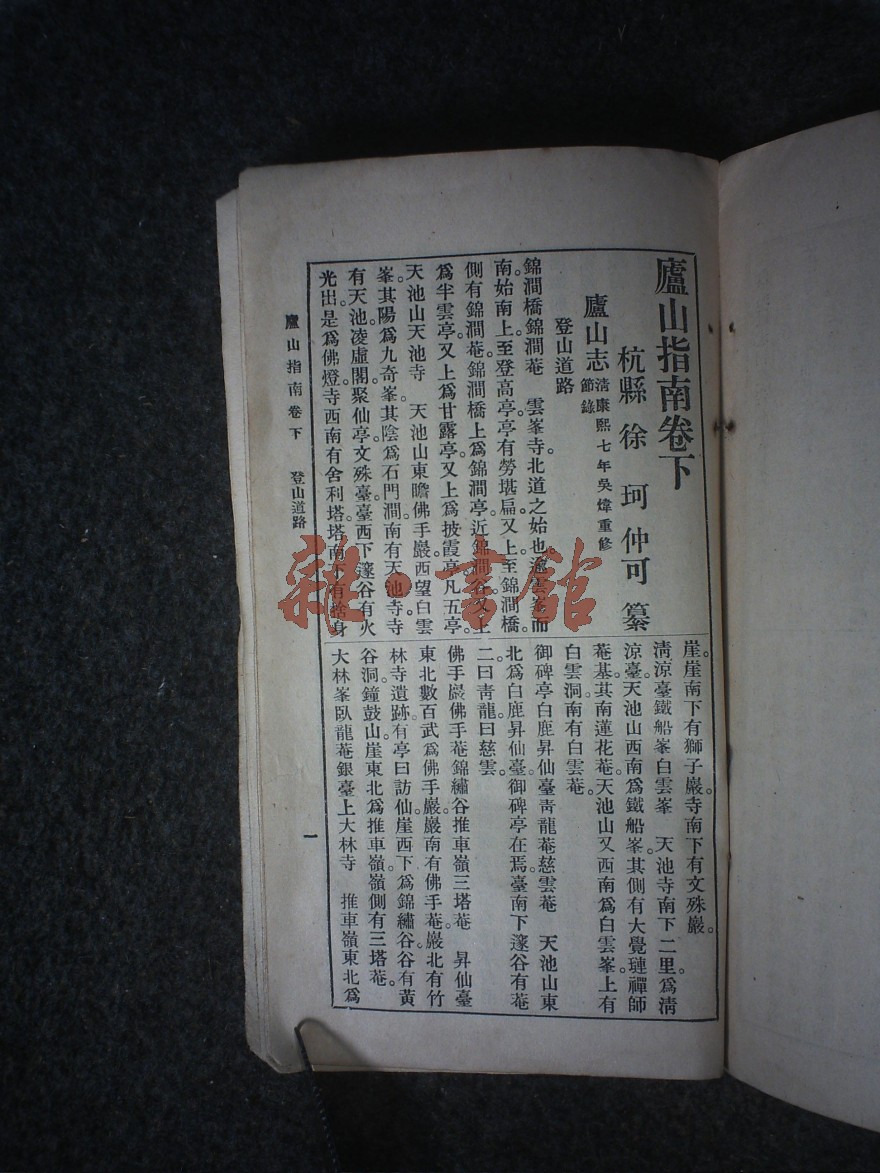 廬山指南卷下
杭縣徐　珂仲可　纂
廬山志清康熙七年吳煒重修節錄
登山道路
錦澗橋錦澗菴　雲峯寺北道之始也。
南。始南上至登高亭。亭有勞堪扁。又上至錦澗橋。
側有錦澗菴。錦澗橋上爲錦澗亭。近錦澗谷。又上
爲半雲亭。又上爲甘露亭。又上爲披霞亭。凡五亭。
天池山天池寺　天池山東瞻佛手巖。西望白雲
峯。其陽爲九奇峯。其陰爲石門澗。南有天池寺。寺
有天池。凌虛閣。聚仙亭。文殊臺。臺西下邃谷。有火
光出。是爲佛燈。寺西南有舍利塔。塔南下有捨身
崖。崖南下有獅子巖。寺南下有文殊巖。
清涼臺鐵船峯白雲峯　天池寺南下二里。爲清
涼臺。天池山西南爲鐵船峯。其側有大覺璉禪師
菴基。其南蓮花菴。天池山又西南爲白雲峯。上有
白雲洞。南有白雲菴。
御碑亭白鹿昇仙臺青龍菴慈雲菴　天池山東
北爲白鹿昇仙臺。御碑亭在焉。臺南下邃谷有菴
二。曰青龍。曰慈雲。
佛手巖佛手菴錦繡谷推車嶺三塔菴　昇仙臺
東北數百武爲佛手巖。巖南有佛手菴。巖北有竹
林寺遺跡。有亭曰訪仙。崖西下爲錦繡谷。谷有黃
谷洞。鐘鼓山。崖東北爲推車嶺。嶺側有三塔菴。
大林峯臥龍菴銀臺上大林寺　推車嶺東北爲
廬山指南卷下　登山道路
一
雜·書館